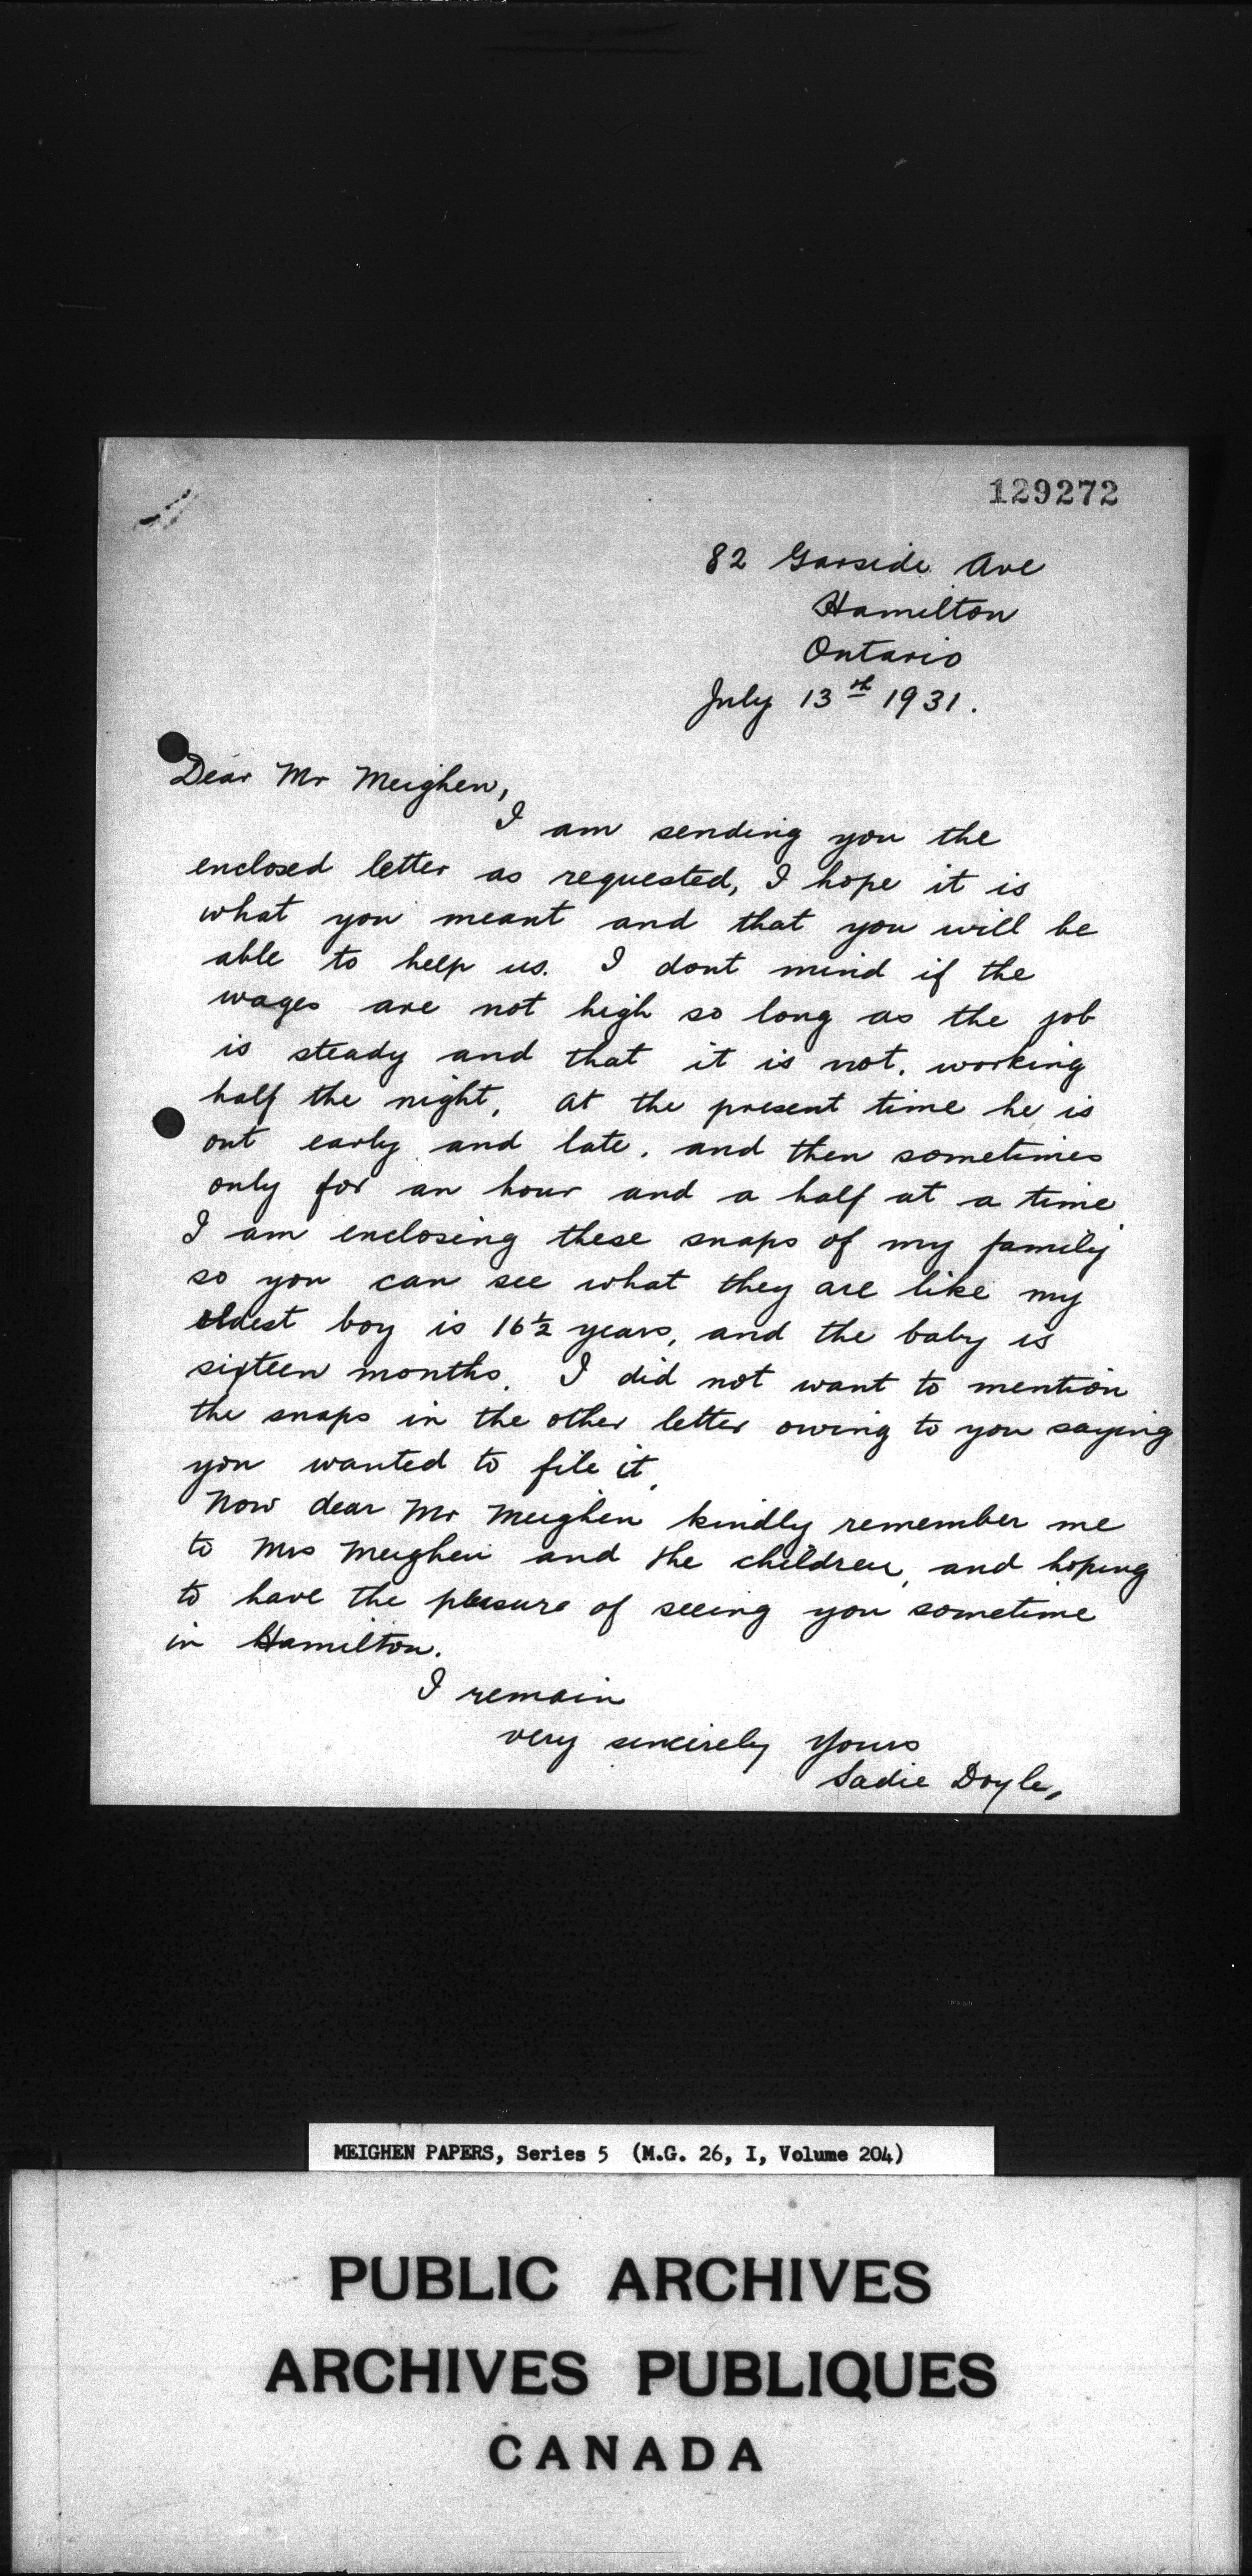 129272
82 Garside Ave
Hamilton
Ontario
July 13th 1931.
Dear Mr Meighen,
I am sending you the
enclosed letter as requested, I hope it is
what you meant and that you will be
able to help us. I dont mind if the
wages are not high so long as the job
is steady and that it is not, working
half the night, at the present time he is
out early and late, and then sometimes
only for an hour and a half at a time
I am enclosing these snaps of my family
so you can see what they are like my
eldest boy is 16½ years, and the baby is
sixteen months. I did not want to mention
the snaps in the other letter owing to you saying
you wanted to file it,
Now dear Mr Meighen kindly remember me
to Mrs Meighen and the children, and hoping
to have the pleasure of seeing you sometime
in Hamilton.
I remain
very sincerely yours
Sadie Doyle,
MEIGHEN PAPERS, Series 5 (M.G. 26, I, Volume 204)
PUBLIC ARCHIVES
ARCHIVES PUBLIQUES
CANADA